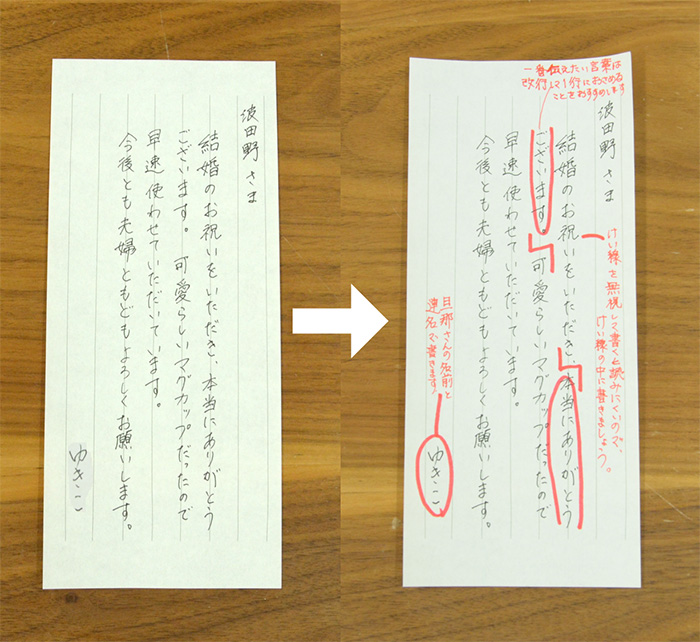 波田野さま
結婚のお祝いをいただき、本当にありがとう
ございます。可愛らしいマグカップだったので
早速使わせていただいています。
今後とも夫婦ともどもよろしくお願いします。
ゆきこ
一番伝えたい言葉は
改行して1行におさめる
ことをおすすめします
波田野さま
けい線を無視して書くと読みにくいので、
けい線の中に書きましょう。
結婚のお祝いをいただき、本当にありがとう
ございます。可愛らしいマグカップだったので
早速使わせていただいています。
今後とも夫婦ともどもよろしくお願いします。
旦那さんの名前と
連名で書きます。
ゆきこ